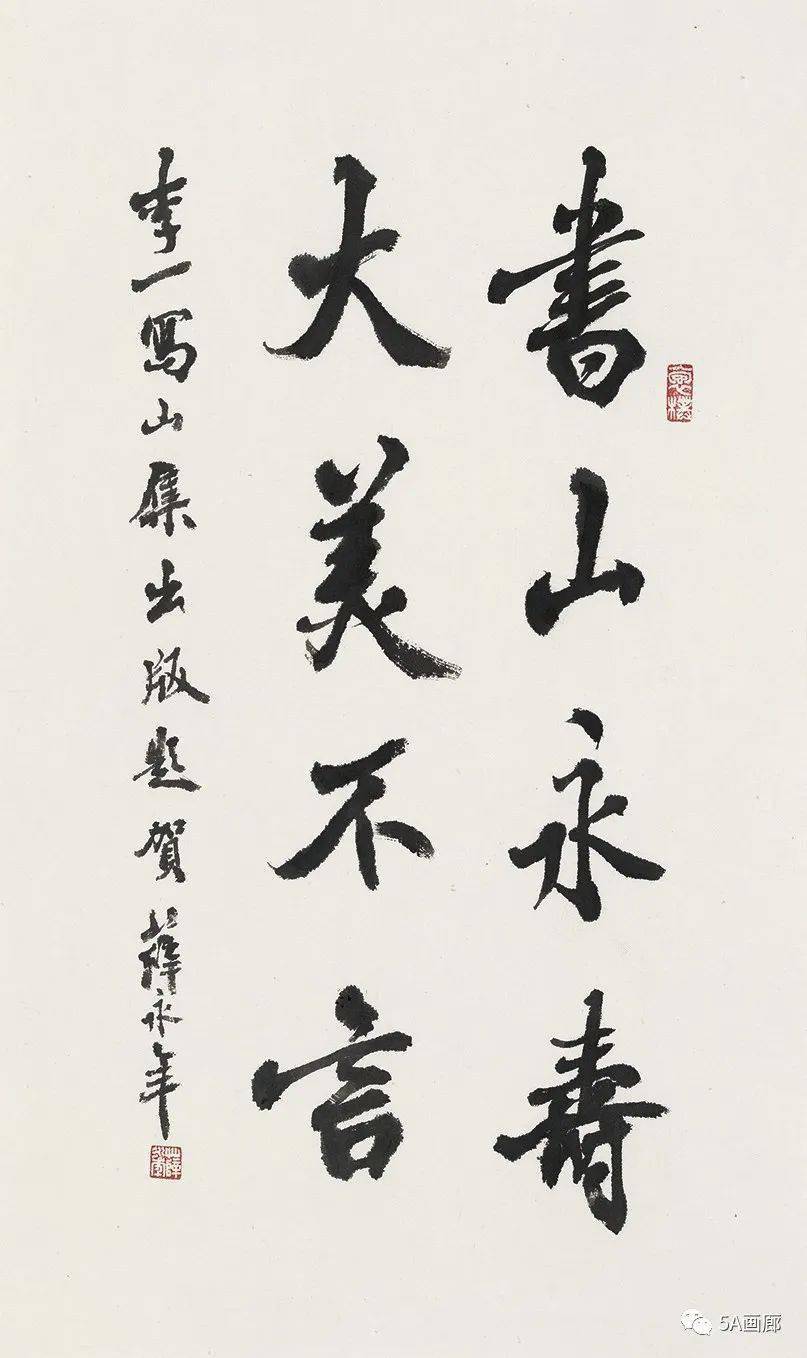 書山永壽
大美不言
李一寫山集出版題賀 薛永年
5A画廊